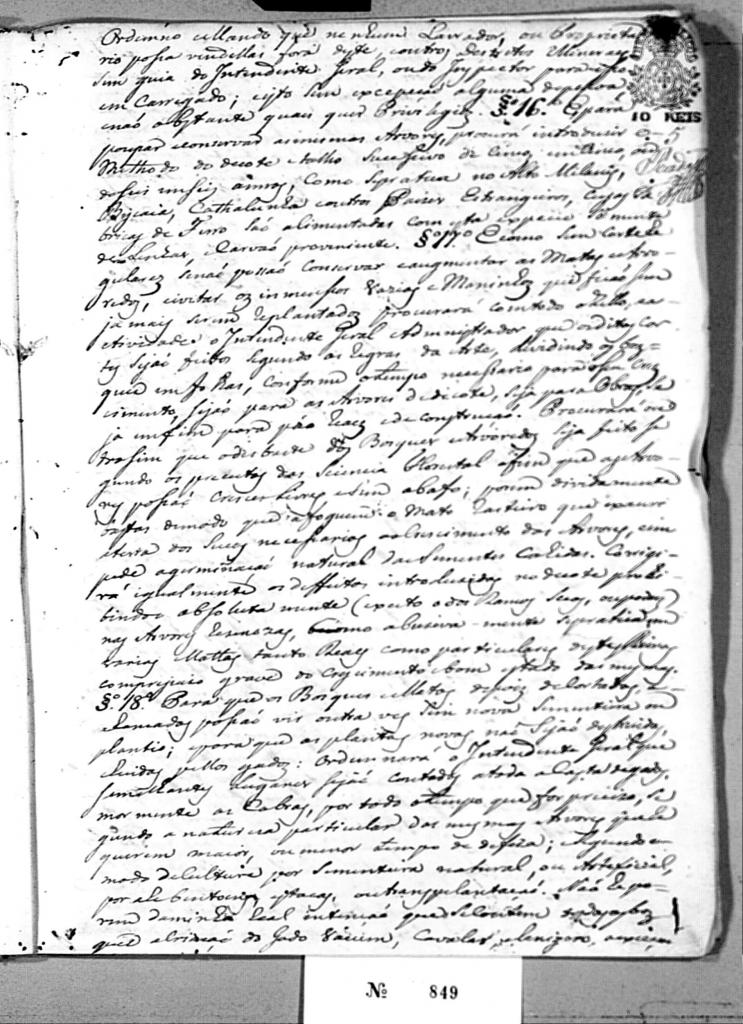 Ordeno e Mando que nenhum Lavrador, ou Proprieta-
rio possa vendellas fora deste, e outros destritos Mineraes
sem guia do Intendente Geral, ou do Inspector para isso
em Carregado; e isto sem excepção alguma de pessoa
e não obstante quaes quer Privilegios. §.º 16.º E para
10 REIS
poupar e conservar as mesmas Arvores, procurará introduzir o
Methodo do decote e talho Sucessivo de Cinco, em Cinco, ou
de Seis em Seis annos, como Se pratica no Alto
Biscaia, e outros Paizes Estrangeiros, cujas Fa-
bricas de Ferro São alimentadas com esta especie Somente
de Lenhas, e Carvão proveniente. §.º 17.º E como Sem Cortes re-
gulares Se não possão conservar e augmentar as Matas e Arvo-
redos, e evitar os immensos Vazios e Maninhos que ficão Sem
ja mais Serem replantados procurará com todo o Zello, e a-
ctividade o Intendente Geral e Administrador que os ditos Cor-
tes Sejão feitos Segundo as regras da Arte, dividindo os Bos-
ques em folhas, conforme o tempo necessario para o Seu Cres-
cimento, Sejão para as Arvores de decote, Seja para Obras, Se-
ja em fim para páo Real e de construcção. Procurará ou-
trosim que o desbaste dos Bosques e Arvoredos Seja feito Se-
gundo os preceitos da Sciencia Florestal afim que as Arvo-
res possão Crescer Livres e Sem abafo; porem dividamente
bastas de modo que afoguem o Mato rasteiro que exauri
a terra dos Sucos necessarios ao Crescimento das Arvores, e im-
pede a germinação natural das Sementes Cahidas. Corrigi-
rá igualmente os deffeitos introduzidos no decote prohi-
bindo absolutamente (excepto o dos Ramos Secos,
nas Arvores rezinozas, como abusiva-mente Se pratica em
varias Mattas tanto Reaes como particulares destes Reinos
com prejuizo grave do Crescimento e bom estado das mesmas.
§.º 18.º Para que os Bosques e Matas depois de Cortadas, e
possão vir outra ves Sem nova Sementeira ou
plantio; e para que as plantas novas não Sejão destruidas,
e Ruidas pellos gados: Ordennará o Intendente Geral que
Semelhantes Lugares Sejão Coutados a toda a Casta de gado,
mormente as Cabras, por todo o tempo que for preciso, Se-
gundo a natureza particular das mesmas Arvores que re-
querem maior, ou menor tempo de defeza; e Segundo o
modo de Cultura por Sementeira natural, ou Arteficial,
por estacas, ou transplantação. Não he po-
rem da minha Real intenção que
que a criação do Gado Vacum, Cavalar, e Lanigero,
Nº 849